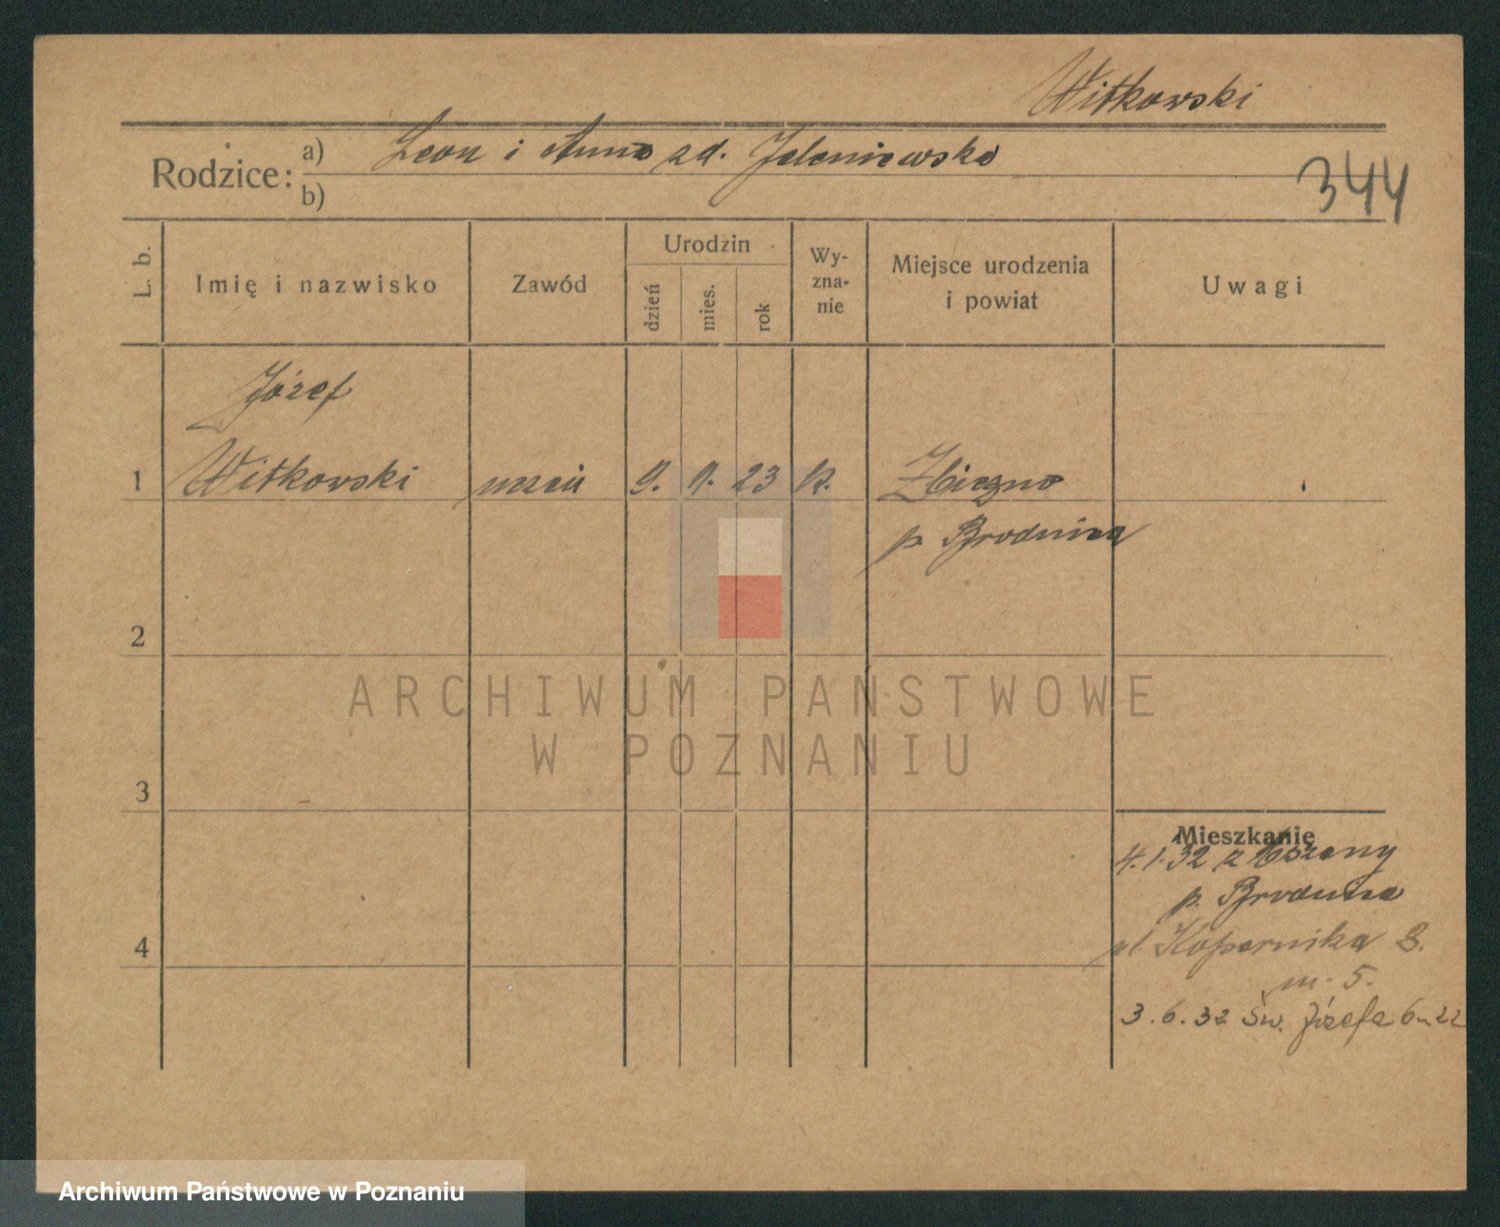 Witkowski
Rodzice:
a) Leon i Anna zd. Jeleniewska
b)
344
L. b.
Imię i nazwisko
Zawód
Urodzin
dzień
mies.
rok
Wy-
zna-
nie
Miejsce urodzenia
i powiat
Uwagi
Józef
1 Witkowski uczeń 9. 9. 23 k. Zbiczno
p. Brodnica
2
3
4
ARCHIWUM PAŃSTWOWE
W POZNANIU
Mieszkanie
4.1.32 z
p. Brodnica
ul. Kopernika 8.
m. 5.
3.6.32 Św. Józefa 6 m 22
Archiwum Państwowe w Poznaniu